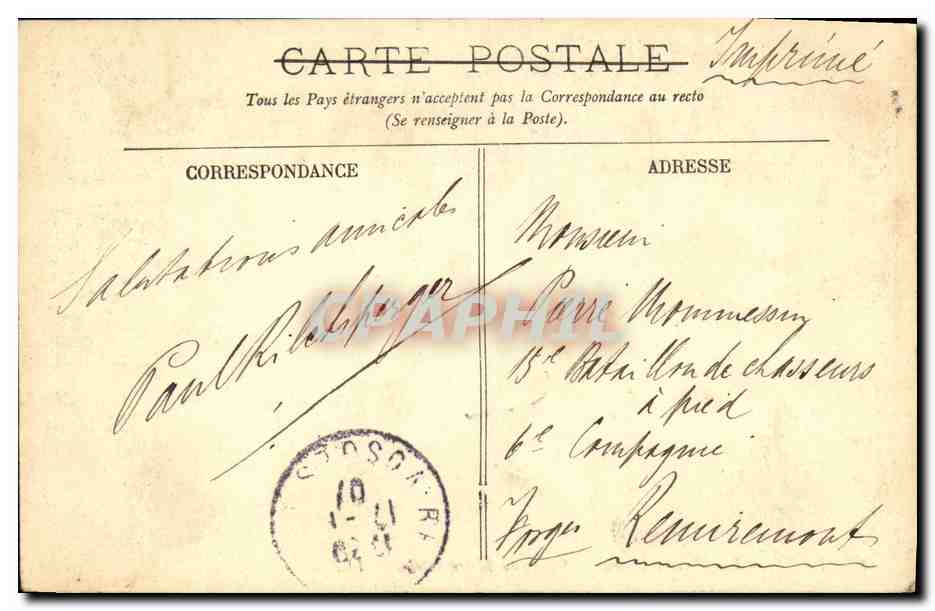 CARTE POSTALE
Imprimé
Tous les Pays étrangers n'acceptent pas la Correspondance au recto
(Se renseigner à la Poste).
CORRESPONDANCE
Salutations amicales
Paul
ADRESSE
Monsieur
Pierre Mommessin
15e Bataillon de chasseurs
à pied
6e Compagnie
Vosges Remiremont
CPAPHIL